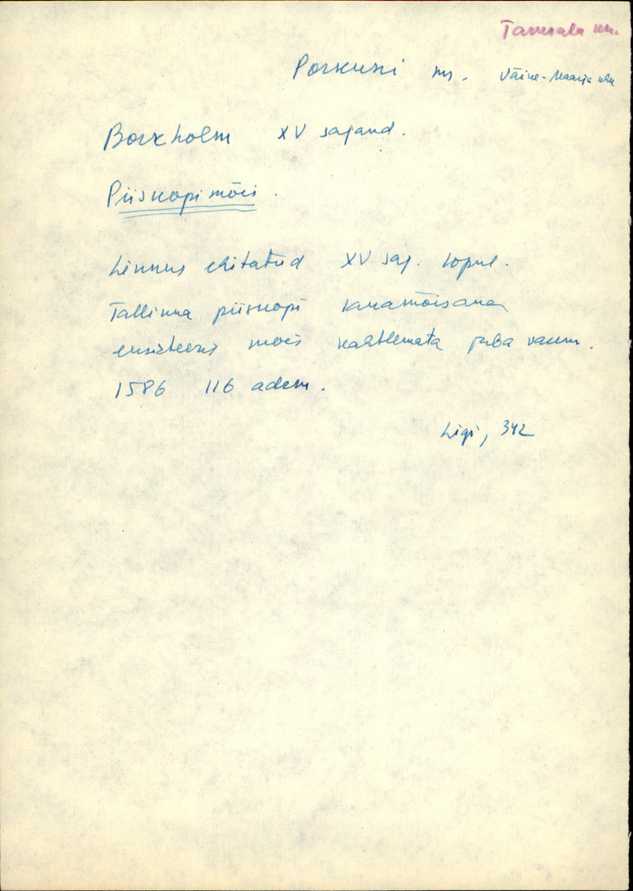 Tamsala kn.
Porkuni ms. Väike-Maarja khk
Borkholm XV sajand.
Piiskopimõis.
Linnus ehitatud XV saj. lõpul.
Tallinna piiskopi karamõisana
eksisteeris mõis kahtlemata juba varem.
1586 116 adem.
Ligi, 342